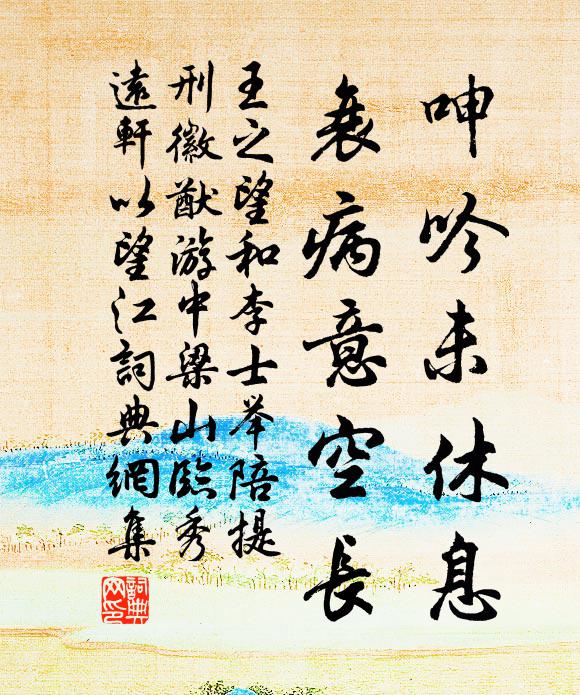 呻吟未休息
衰病意空長
王之望和李士举陪提
刑徽猷游中梁山臨秀
遠軒以望江詞典網集
詞典网印